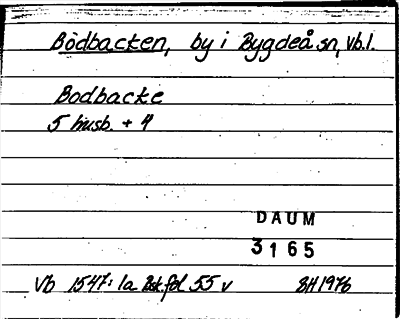 Bodbacken, by i Bygdeå sn, Vb.l.
Bodbacke
5 husb. + 4
DAUM
3165
Vb 1547: 1a Bsk.fol 55 v BH 1976